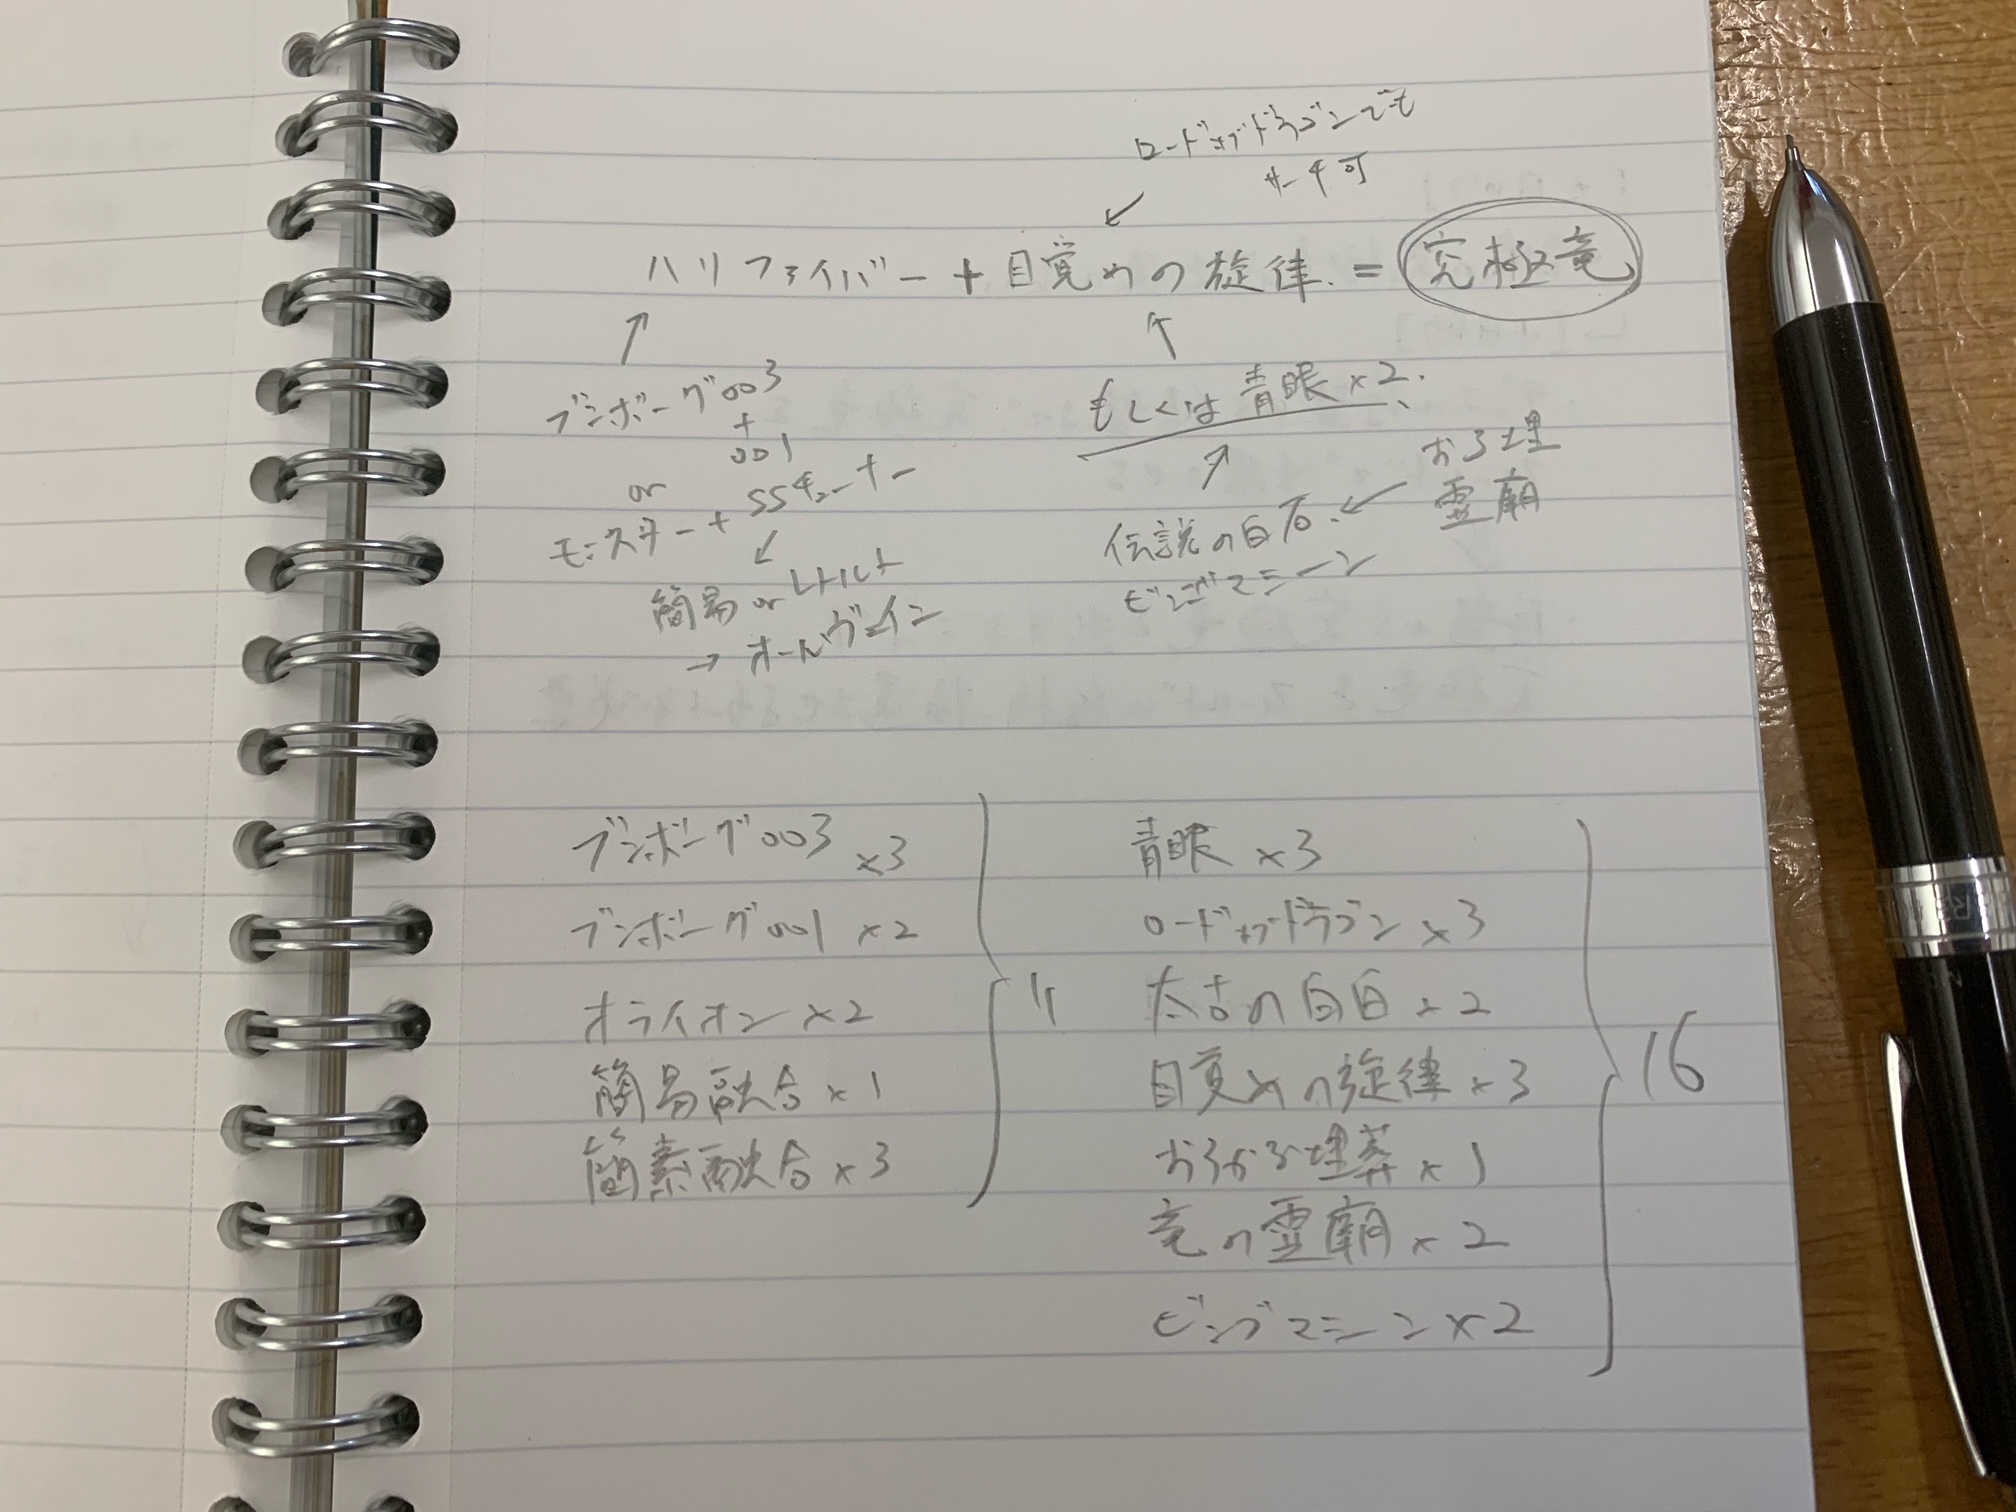 ロードオブドラゴンでも
サーチ可
ハリファイバー + 目覚めの旋律 = 究極竜
ブンボーグ003
+
001
or
モンスター + SSチューナー
簡易 or レトルト
→ オールヴェイン
もしくは 青眼×2.
おろ埋
霊廟
伝説の白石.
ビンゴマシーン
ブンボーグ003 ×3
ブンボーグ001 ×2
オライオン ×2
簡易融合 ×1
簡素融合 ×3
11
青眼 ×3
ロードオブドラゴン ×3
太古の白 ×2
目覚めの旋律 ×3
おろかな埋葬 ×1
竜の霊廟 ×2
ビンゴマシーン ×2
16